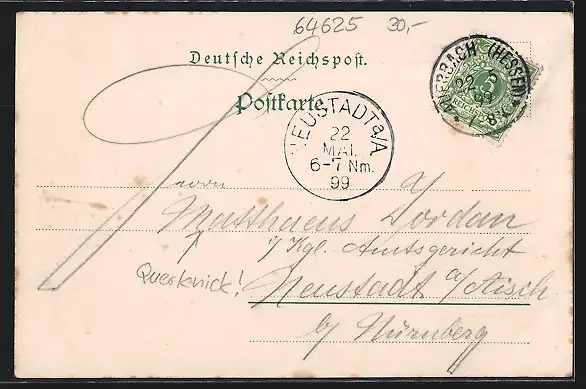 64625 30,-
Deutsche Reichspost.
Postkarte
AUERBACH (HESSEN)
22 5
99
7-8
NEUSTADT a/A
22
MAI.
6-7 Nm.
99
Herrn
Matthaeus Jordan
Kgl. Amtsgericht
Querknick!
Neustadt a/Aisch
b/ Nürnberg